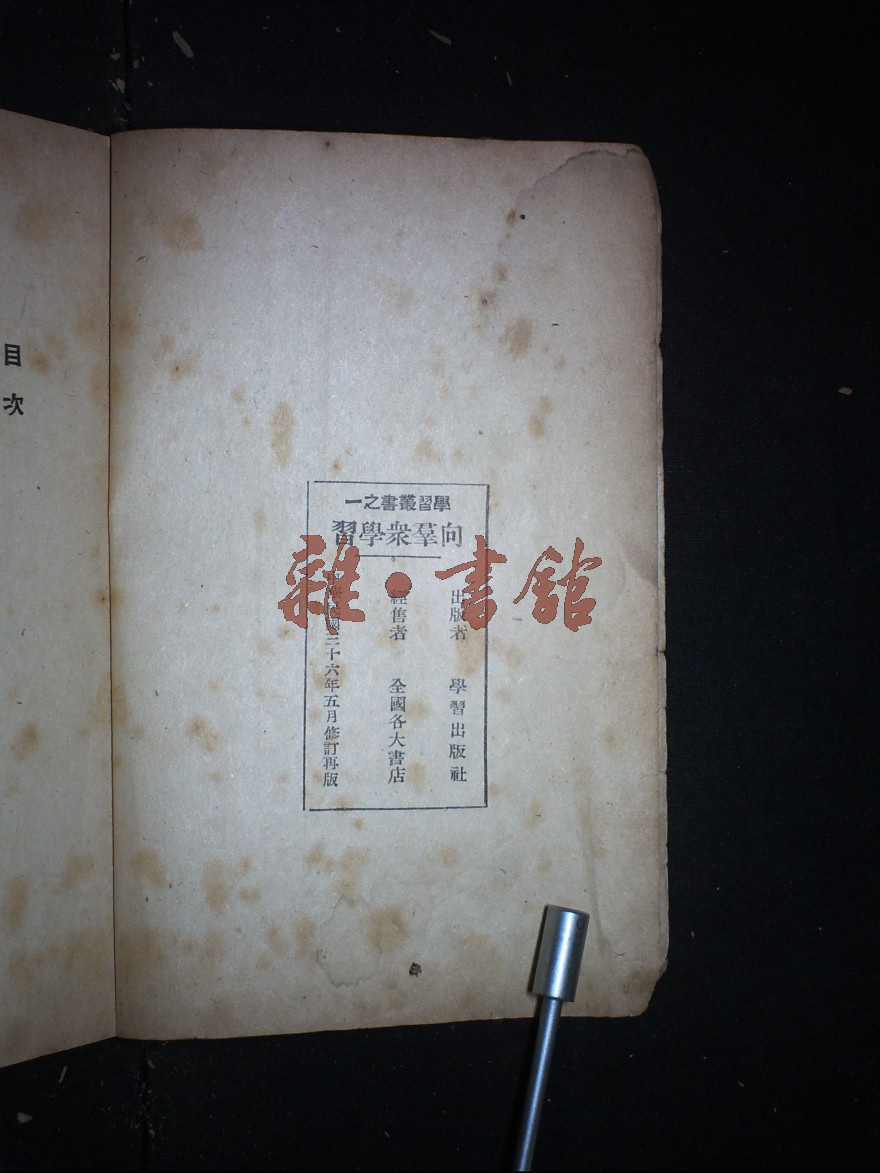 學習叢書之一
向羣衆學習
出版者 學習出版社
經售者 全國各大書店
中華民國三十六年五月修訂再版
目次
雜·書館